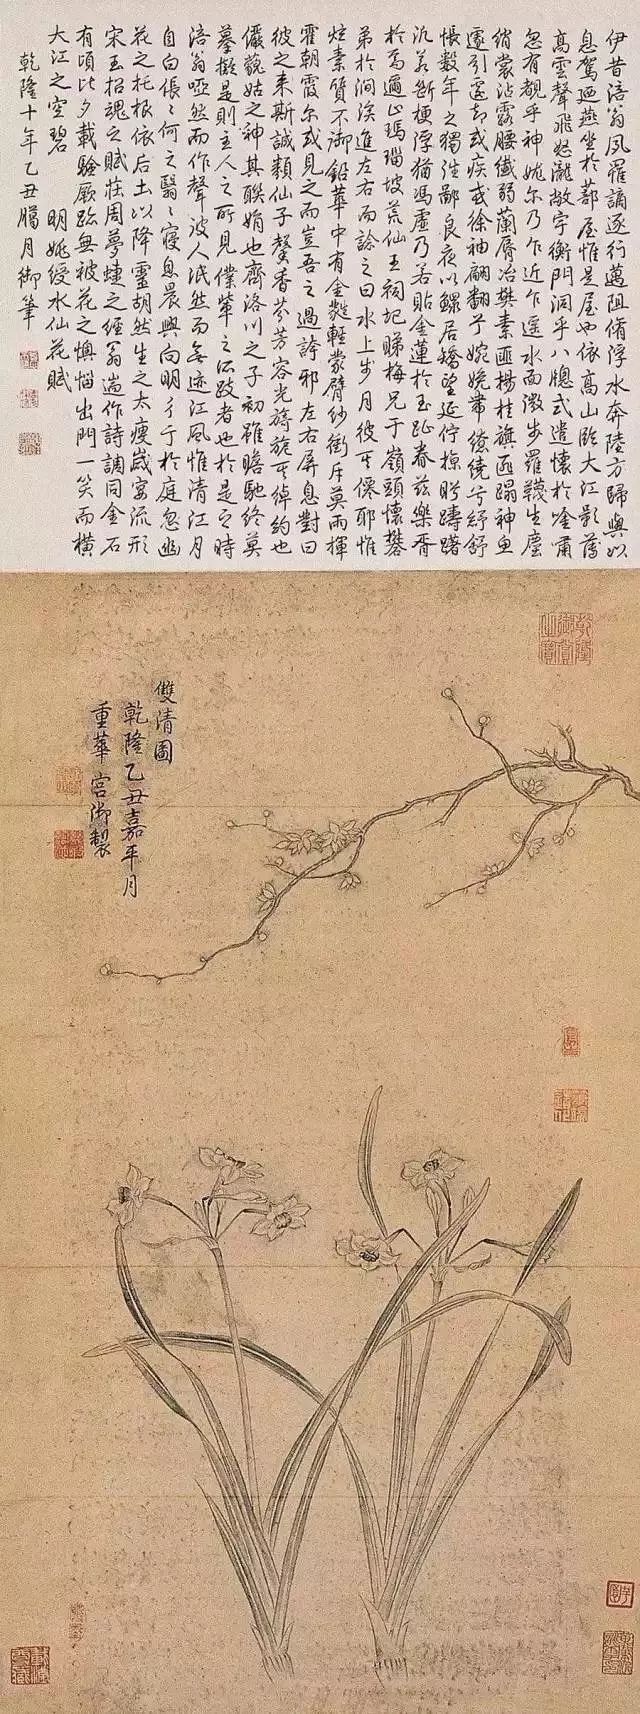 伊昔涪翁夙罹謫逐行邁阻脩浮水奔陸方歸與以
息駕廼燕坐於蔀屋惟是屋也依高山臨大江影薄
高雲聲飛怒瀧敞宇衡門洞乎八牕式遣懷於唫嘯
忽有覩乎神姚尔乃乍近乍遥水面微步羅韈生塵
綃裳沾露腰纖弱蘭脣冶樊素匪楊桂旗函蹋神魚
遽引還却或疾或徐袖翩翻兮婉娩帶繚繞兮紓舒
悵數年之獨往鄙良夜以鰥居矯望延佇掠眄躊躇
汎若斷梗浮猶馮虛乃若貼金蓮於玉趾眷兹樂胥
於焉遍止瑪瑙坡荒仙王祠圮睇梅兄于嶺頭懷攀
弟於澗涘進左右而諗之曰水上步月彼其僊耶惟
炫素質不御鉛華中有金蕤輕蒙臂紗衝斥莫雨揮
霍朝霞尔或見之而豈吾之過誇邪左右屏息對曰
彼之来斯誠類仙子馨香芬芳容光旖旎其綽約也
儼藐姑之神其聯娟也齊洛川之子初雖瞻馳終莫
摹擬是則主人之所見僕輩之所跂者也於是之時
涪翁啞然而作聲波人泯然而無迹江風惟清江月
自白倀倀何之翳翳寢息晨興向明彳亍於庭忽幽
花之托根依后土以降靈胡然生之太瘦歲寔流形
宋玉招魂之賦莊周夢蝶之經翁遄作詩調同金石
有頃比夕載驗厥跡無被花之懊惱出門一笑而橫
大江之空碧 明姚綬水仙花賦
乾隆十年乙丑臘月御筆
雙清圖
乾隆乙丑嘉平月
重華宮御製